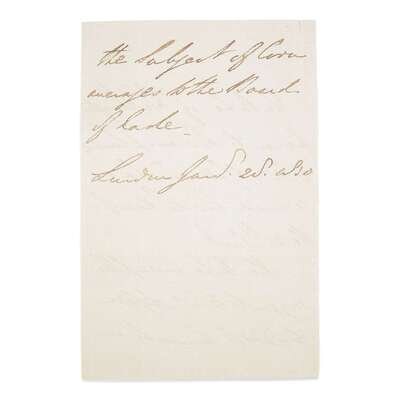 the Subject of Corn
averages to the Board
of Trade_
London Jany. 28. 1830